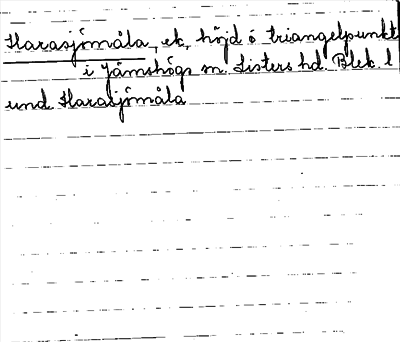 Harasjömåla, ek, höjd o triangelpunkt
i Jämshögs sn. Listers hd. Blek. l
und Harasjömåla